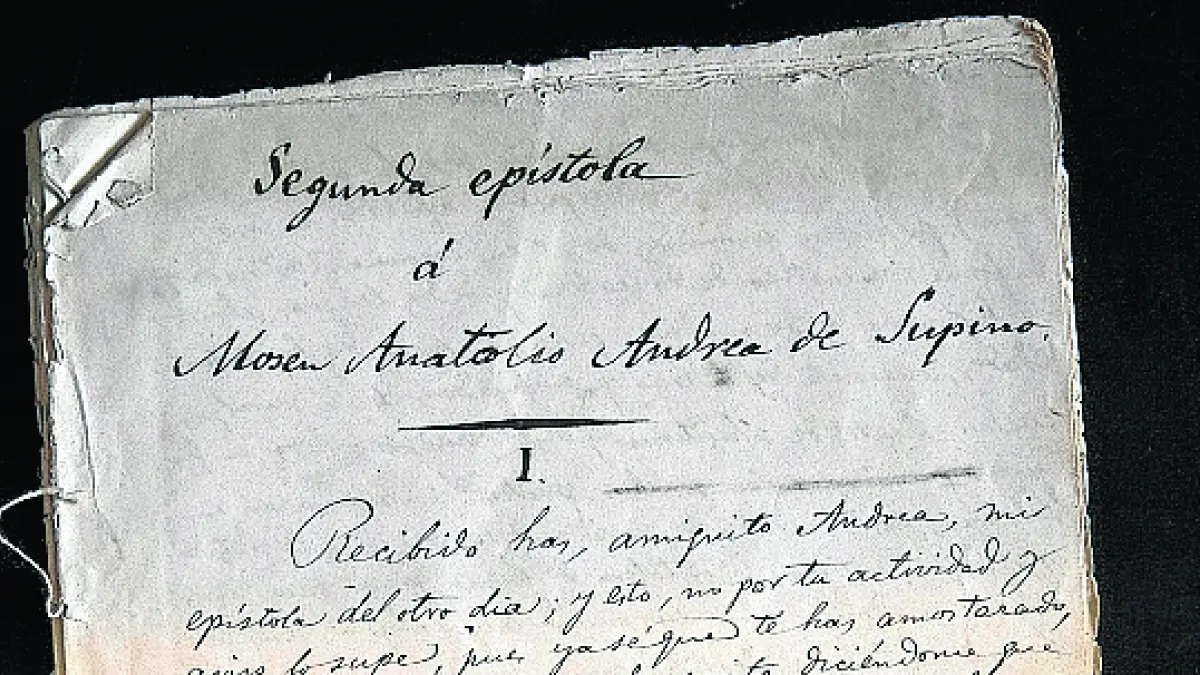 Segunda epístola
á
Mosen Anatolio Andrea de Supino.
I.
Recibido has, amiguito Andrea, mi
epístola del otro dia; y esto, no por tu actividad y
lo supe, pues ya sé que te has amostazado,
diciéndome que